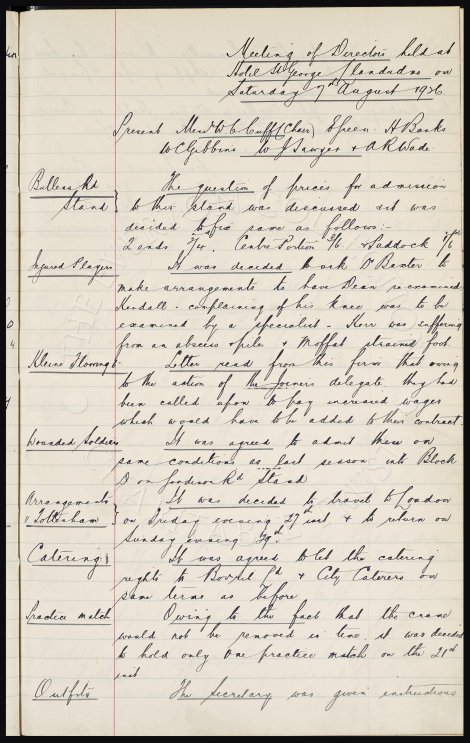 Meeting of Directors held at
Hotel St George Llandudno on
Saturday 7th August 1926.
Present Messrs W.C. Cuff (Chair) E Green. A Banks
W C Gibbins. W J Sawyer & A R Wade
Bullens Rd
Stand
The question of prices for admission
to this stand was discussed & it was
decided to fix same as follows:-
2 ends 2/4. Centre Portion 3/6 & Paddock 1/6
Injured Players
It was decided to ask Dr Baxter to
make arrangements to have Dean re-examined
Kendall - complaining of his knee was to be
examined by a specialist - Kerr was suffering
from an abscess & piles & Moffat strained foot.
Kleine Flooring
Letter read from this firm that owing
to the action of the Joiners delegate they had
been called upon to pay increased wages
which would have to be added to their contract.
Wounded Soldiers
It was agreed to admit these on
same conditions as last season into Block
D on Goodison Rd Stand
Arrangements
v Tottenham
It was decided to travel to London
on Friday evening 27th inst & to return on
Sunday evening 29th.
Catering
It was agreed to let the catering
rights to Bovril Ld & City Caterers on
same terms as before
Practice match
Owing to the fact that the crane
would not be removed in time it was decided
to hold only one practice match on the 21st
inst
Outfits
The Secretary was given instructions